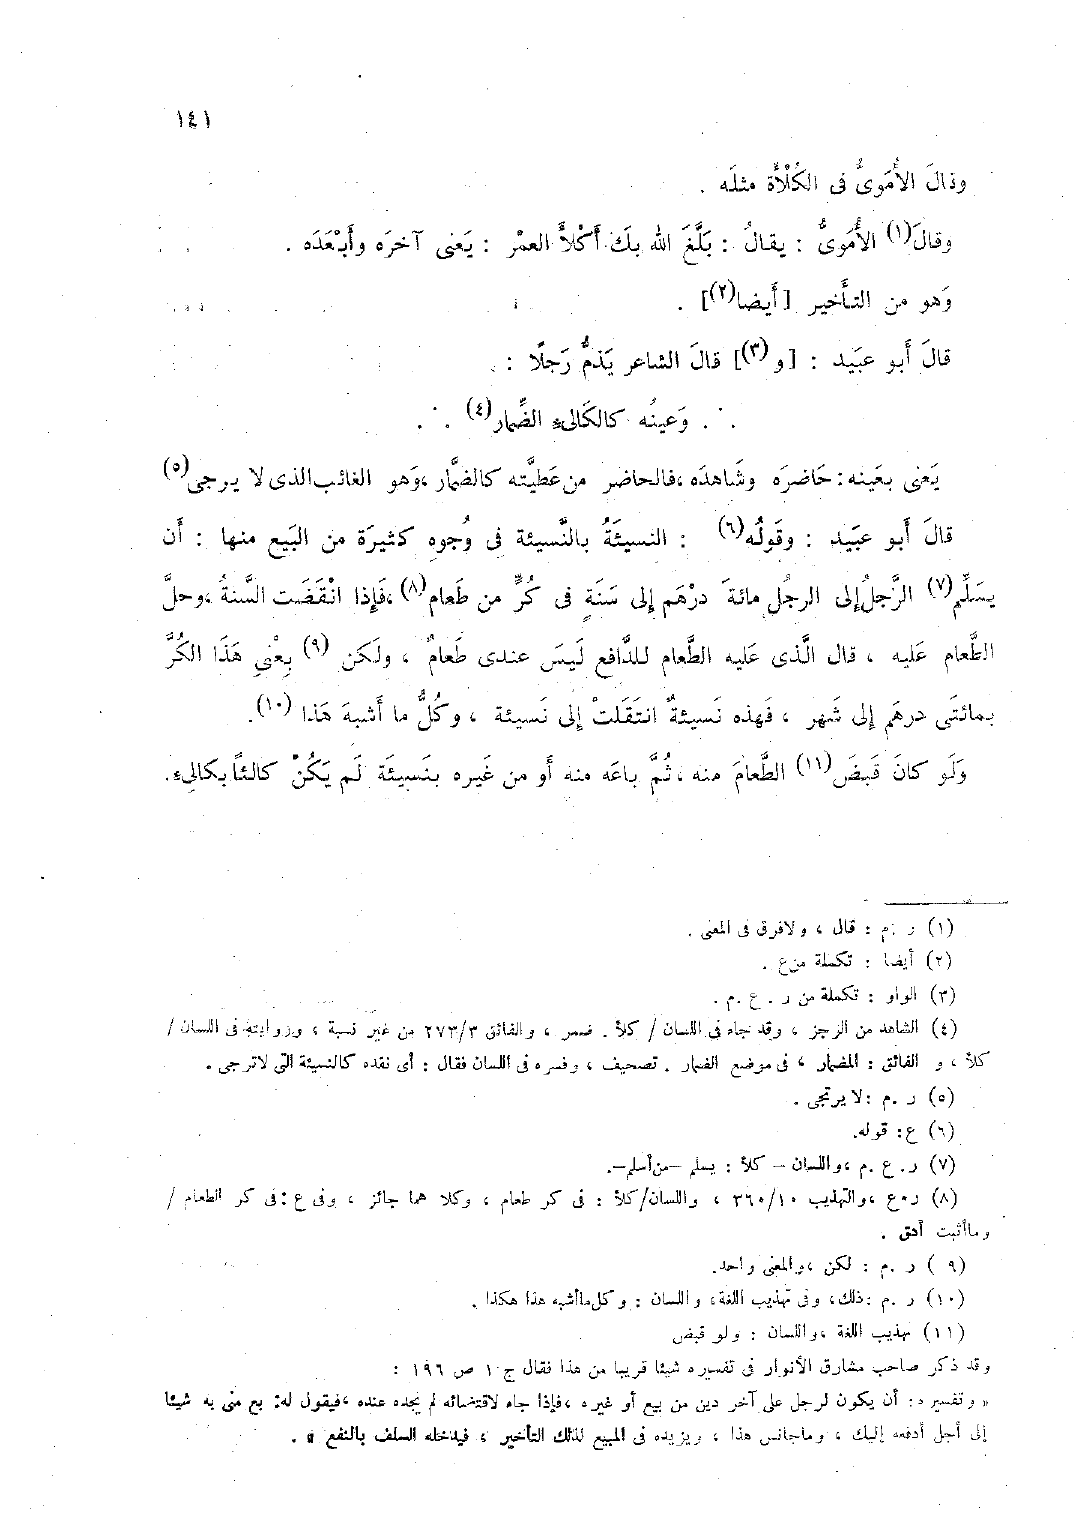 ١٤١
وقالَ الأُمَوىُّ فى الكُلْأَة مثلَه .
وقالَ(١) الأُمَوىُّ : يقالُ : بَلَّغَ الله بكَ أَكْلأَ العمْر : يَعَنى آخرَه وأَبْعَدَه .
وَهو من التأخير [أَيضا(٢)] .
قالَ أَبو عبَيد : [و(٣)] قالَ الشاعر يَذمُّ رَجلًا :
. . وَعينُه كالكَالىء الضِّمار(٤) . .
يَعَنى بعَينه : حَاضرَه وشَاهدَه ، فالحاضر من عَطيَّته كالضِّمار ، وَهو الغائب الذى لا يرجى(٥)
قالَ أَبو عبَيد : وقَولُه(٦) : النسيئَةُ بالنَّسيئة فى وُجوه كثيرَة من البَيع منها : أَن
يسَلِّم(٧) الرَّجلُ إلى الرجُل مائةَ درْهَم إلى سَنَةٍ فى كُرٍّ من طَعام(٨) ، فَإذا انْقَضَت السَّنةُ ، وحلَّ
الطَّعام عَليه ، قال الَّذى عَليه الطَّعام للدَّافع لَيسَ عندى طَعامٌ ، ولَكن (٩) بِعْنِي هَذَا الكُرَّ
بمائتَى درهَم إلى شَهر ، فَهذه نَسيئةٌ انتَقَلتْ إلى نَسيئة ، وكُلُّ ما أَشبهَ هَذا (١٠).
وَلَو كانَ قَبضَ(١١) الطَّعامَ منه ، ثُمَّ باعَه منه أَو من غَيره بنَسيئَة لَم يَكُنْ كالئًا بكالىء.
(١) ر . م : قال ، ولافرق فى المعنى .
(٢) أيضا : تكملة من ع .
(٣) الواو : تكملة من ر . ع . م .
(٤) الشاهد من الرجز ، وقد جاء فى اللسان / كلأ . ضمر ، والفائق ٢٧٣/٣ من غير نسبة ، وروايتة فى اللسان /
كلأ ، و الفائق : المضمار ، فى موضع الضمار . تصحيف ، وفسره فى اللسان فقال : أى نقده كالنسيئة التى لاترجى .
(٥) ر . م : لا يرتجى .
(٦) ع : قوله.
(٧) ر . ع . م ، واللسان – كلأ : يسلم –من أسلم–.
(٨) ر . ع ، والتهذيب ٣٦٠/١٠ ، واللسان/كلأ : فى كر طعام ، وكلا هما جائز ، وفى ع : فى كر الطعام /
وماأثبت أدق .
(٩ ) ر . م : لكن ، والمعنى واحد.
(١٠) ر . م : ذلك ، وفى تهذيب اللغة ، واللسان : وكل ماأشبه هذا هكذا .
(١١) تهذيب اللغة ، واللسان : ولو قبض
وقد ذكر صاحب مشارق الأنوار فى تفسيره شيئا قريبا من هذا فقال ج ١ ص ١٩٦ :
« وتفسيره : أن يكون لرجل على آخر دين من بيع أو غيره ، فإذا جاء لاقتضائه لم يجده عنده ، فيقول له : بع منى به شيئا
إلى أجل أدفعه إليك ، وماجانس هذا ، ويزيده فى المبيع لذلك التأخير ، فيدخله السلف بالنفع » .